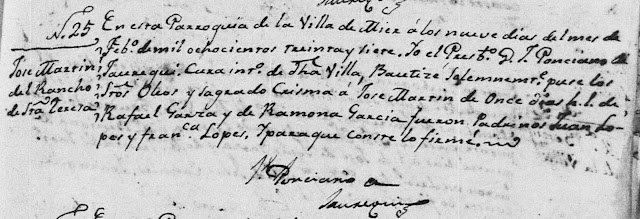 N. 25
Jose Martin
del Rancho
de Sta Teresa
En esta Parroquia de la Villa de Mier á los nueve dias del mes de
Febo. de mil ochocientos treinta y siete. Yo el Presbo. D. J. Ponciano de
Jauregui. Cura into. de dha Villa, Bautize Solemnemte. puse los
Stos Oleos y Sagrado Crisma á Jose Martin de Once dias h. l. de
Rafael Garza y de Ramona Garcia fueron Padrinos Juan Lo-
pes y franca Lopes, Y para que conste lo firmé.
Ponciano de
Jauregui